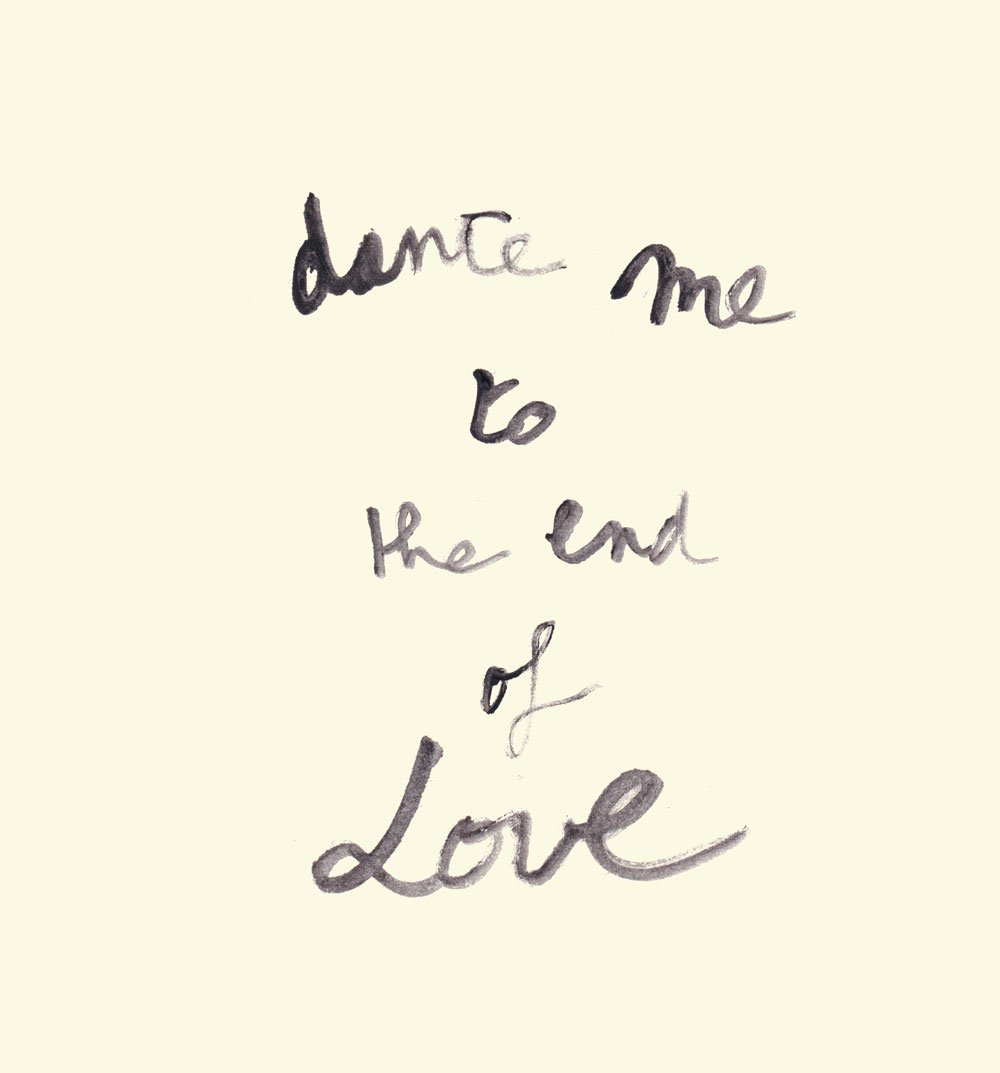 dance me
to
the end
of
Love